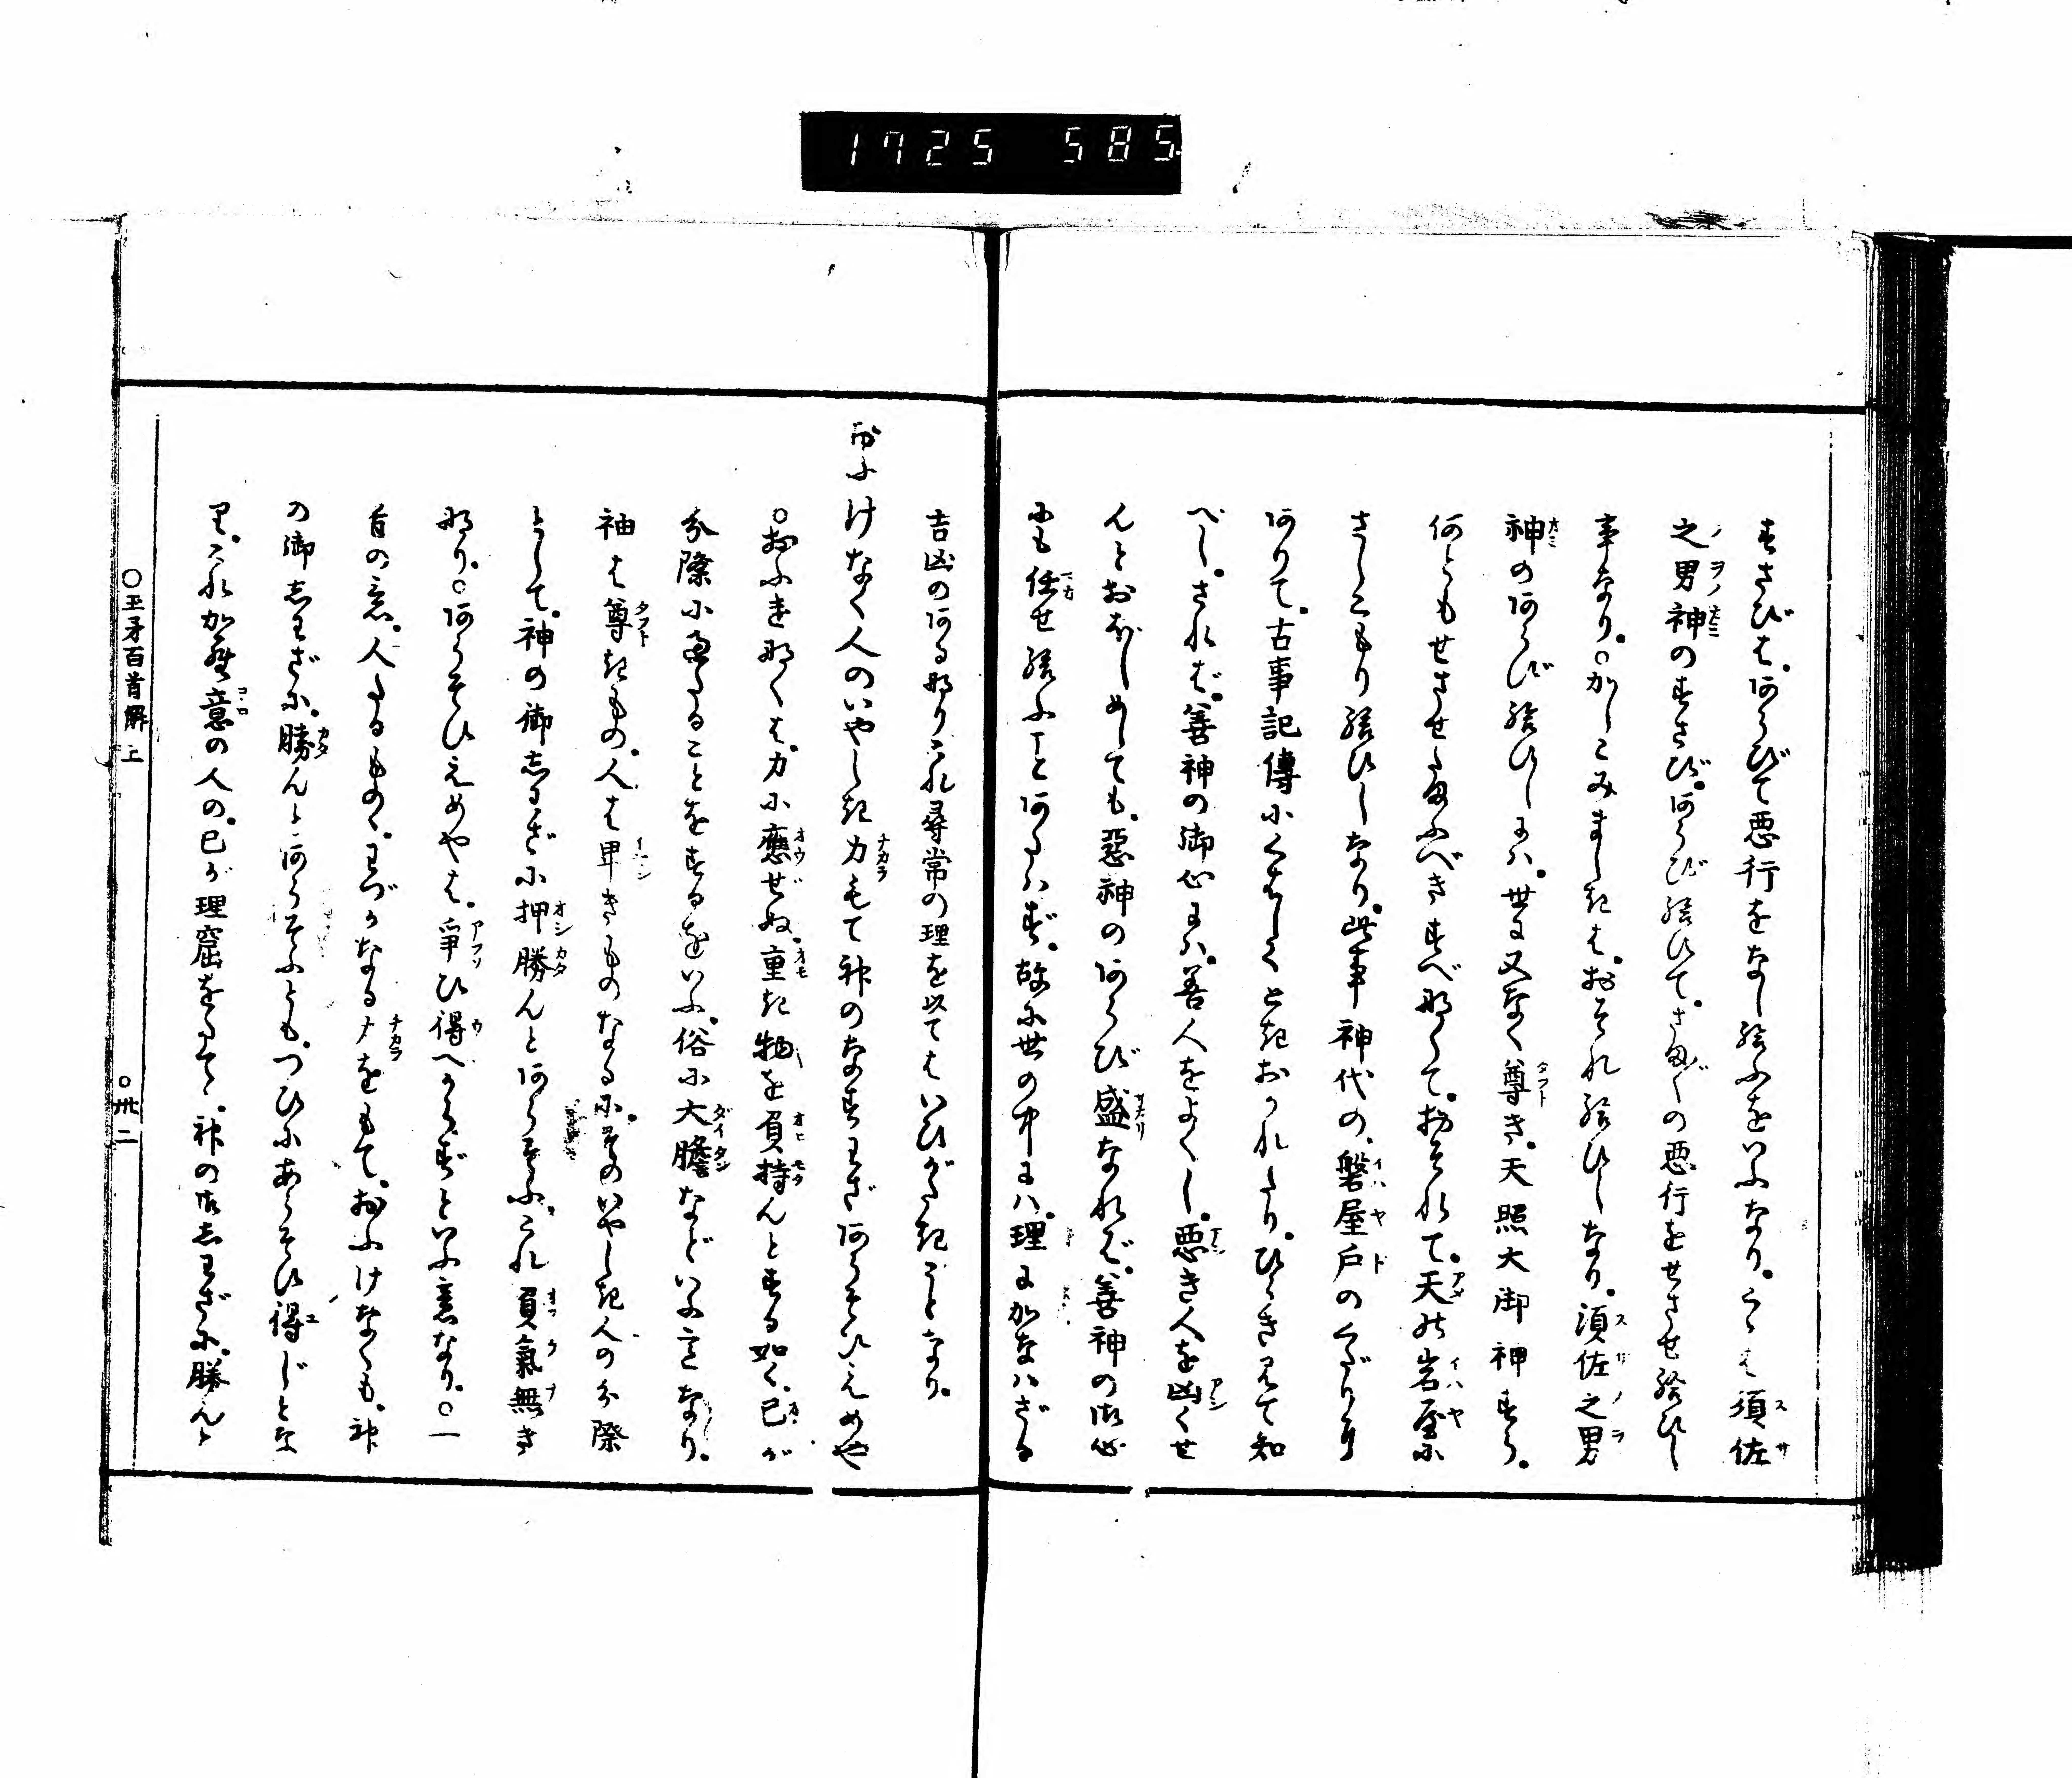 1725 585
すさびは。あらびて悪行をなし給ふをいふなり。こゝは須佐
之男神のすさび。あらび給ひて。さま〲の悪行をせさせ給ひし
事なり。○かしこみましきは。おそれ給ひしなり。須佐之男
神のあらび給ひしには。世に又なく尊き。天照大御神すら。
何ともせさせたまふべきすべなくて。おそれて。天の岩屋に
さしこもり給ひしなり。此事神代の。磐屋戸のくだりに
ありて。古事記傳にくはしくときおかれたり。ひらき見て知
べし。されば。善神の御心には。善人をよくし。悪き人を凶くせ
んとおぼしめしても。惡神のあらび盛なれば。善神の御心
にも任せ給ふことあたはず。故に世の中には。理にかなはざる
吉凶のあるなりこれ尋常の理を以てはいひがたきことなり。
おふけなく人のいやしき力もて神のなすわざあらそひえめや
○おふけなくは。力に應ぜぬ。重き物を負持んとする如く。己が
分際に過たることをするをいふ。俗に大膽などいふ言なり。
神は尊きもの。人は卑きものなるに。そのいやしき人の分際
として。神の御しわざに押勝んとあらそふ。これ負氣無き
なり。○あらそひえめやは。爭ひ得べからずといふ意なり。○一
首の意。人たるものゝ。わづかなる力をもて。おふけなくも。神
の御志わざに。勝んとあらそふとも。つひにあらそひ得じとな
り。これ漢意の人の。己が理窟をたてゝ。神の御志わざに。勝んと
○玉矛百首解上
○卅二